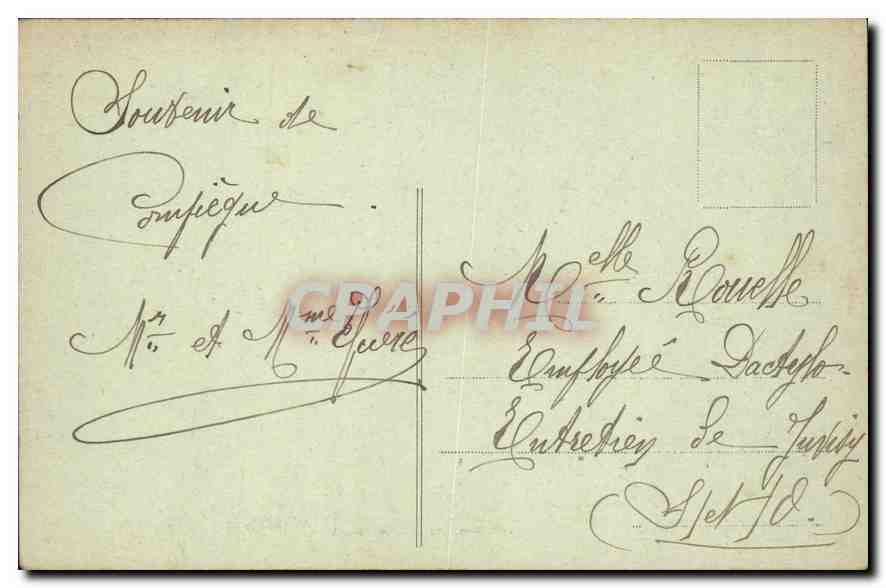 Souvenir de
Compiègne.
Mr et Mme
CPAPHIL
Melle Rouelle
Employée Dactylo-
Entretien de Juvisy
(S/et/O.)